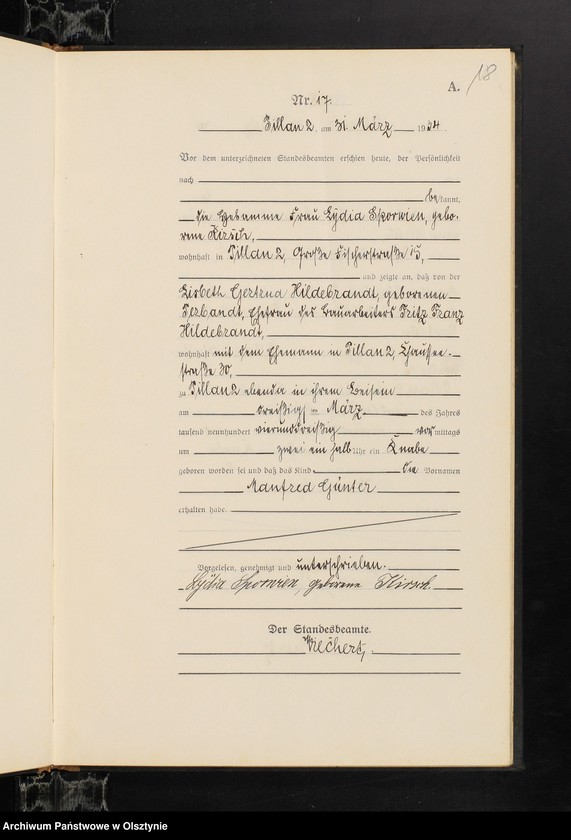 18
A.
Nr. 17.
Pillau 2, am 31. März 1934.
Vor dem unterzeichneten Standesbeamten erschien heute, der Persönlichkeit
nach
bekannt,
die Hebamme Frau Lydia Skorwien, gebo-
rene Kirsch,
wohnhaft in Pillau 2, Große Fischerstraße 15,
und zeigte an, daß von der
Lisbeth Gertrud Hildebrandt, geborenen
Perbandt, Ehefrau des Bauarbeiters Fritz Franz
Hildebrandt,
wohnhaft mit dem Ehemann in Pillau 2, Chaussee-
straße 30,
zu Pillau 2 ebenda in ihrem Beisein
am dreißigsten März des Jahres
tausend neunhundert vierunddreißig vormittags
um zwei ein halb Uhr ein Knabe
geboren worden sei und daß das Kind die Vornamen
Manfred Günter
erhalten habe.
Vorgelesen, genehmigt und unterschrieben.
Lydia Skorwien, geborene Kirsch.
Der Standesbeamte.
Archiwum Państwowe w Olsztynie